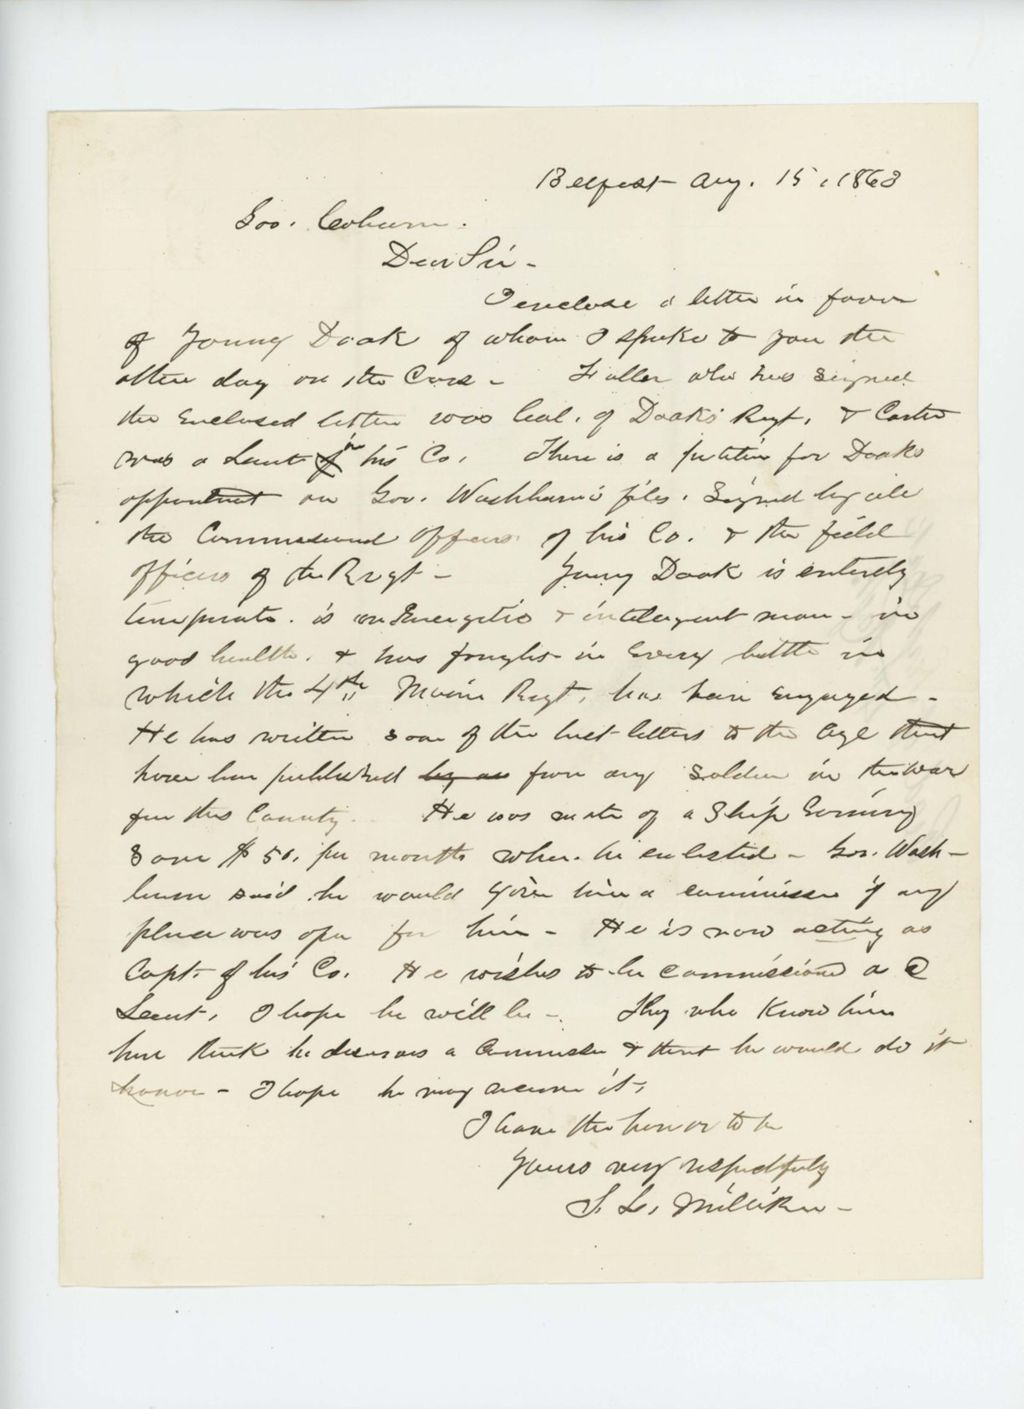 Belfast Aug. 15, 1863
Gov. Coburn.
Dear Sir -
I enclose a letter in favor
of Young Doak of whom I spoke to you the
other day on the Cars - Fuller who has signed
the enclosed letter was Col. of Doaks Regt, & Carter
was a Leut of in his Co. There is a petition for Doaks
appointment on Gov. Washburn's files. Signed by all
the Commissioned Officers of his Co. & the field
officers of the Regt - Young Doak is entirely
temperate. is an Energetic & intelegent man - in
good health. & has fought in Every battle in
which the 4th Maine Regt, has been engaged -
He has written some of the best letters to the Age that
have been published by an from any soldier in the war
from this County. He was mate of a Ship Earning
Some $50. per month when he enlisted - Gov. Wash-
burn said he would give him a commission if any
place was open for him - He is now acting as
Capt. of his Co. He wishes to be commissioned a
Leut, I hope he will be -. They who Know him
here think he deserves a Commission & that he would do it
honor - I hope he may receive it,
I have the honor to be
Yours very respectfully
S. L. Milliken -